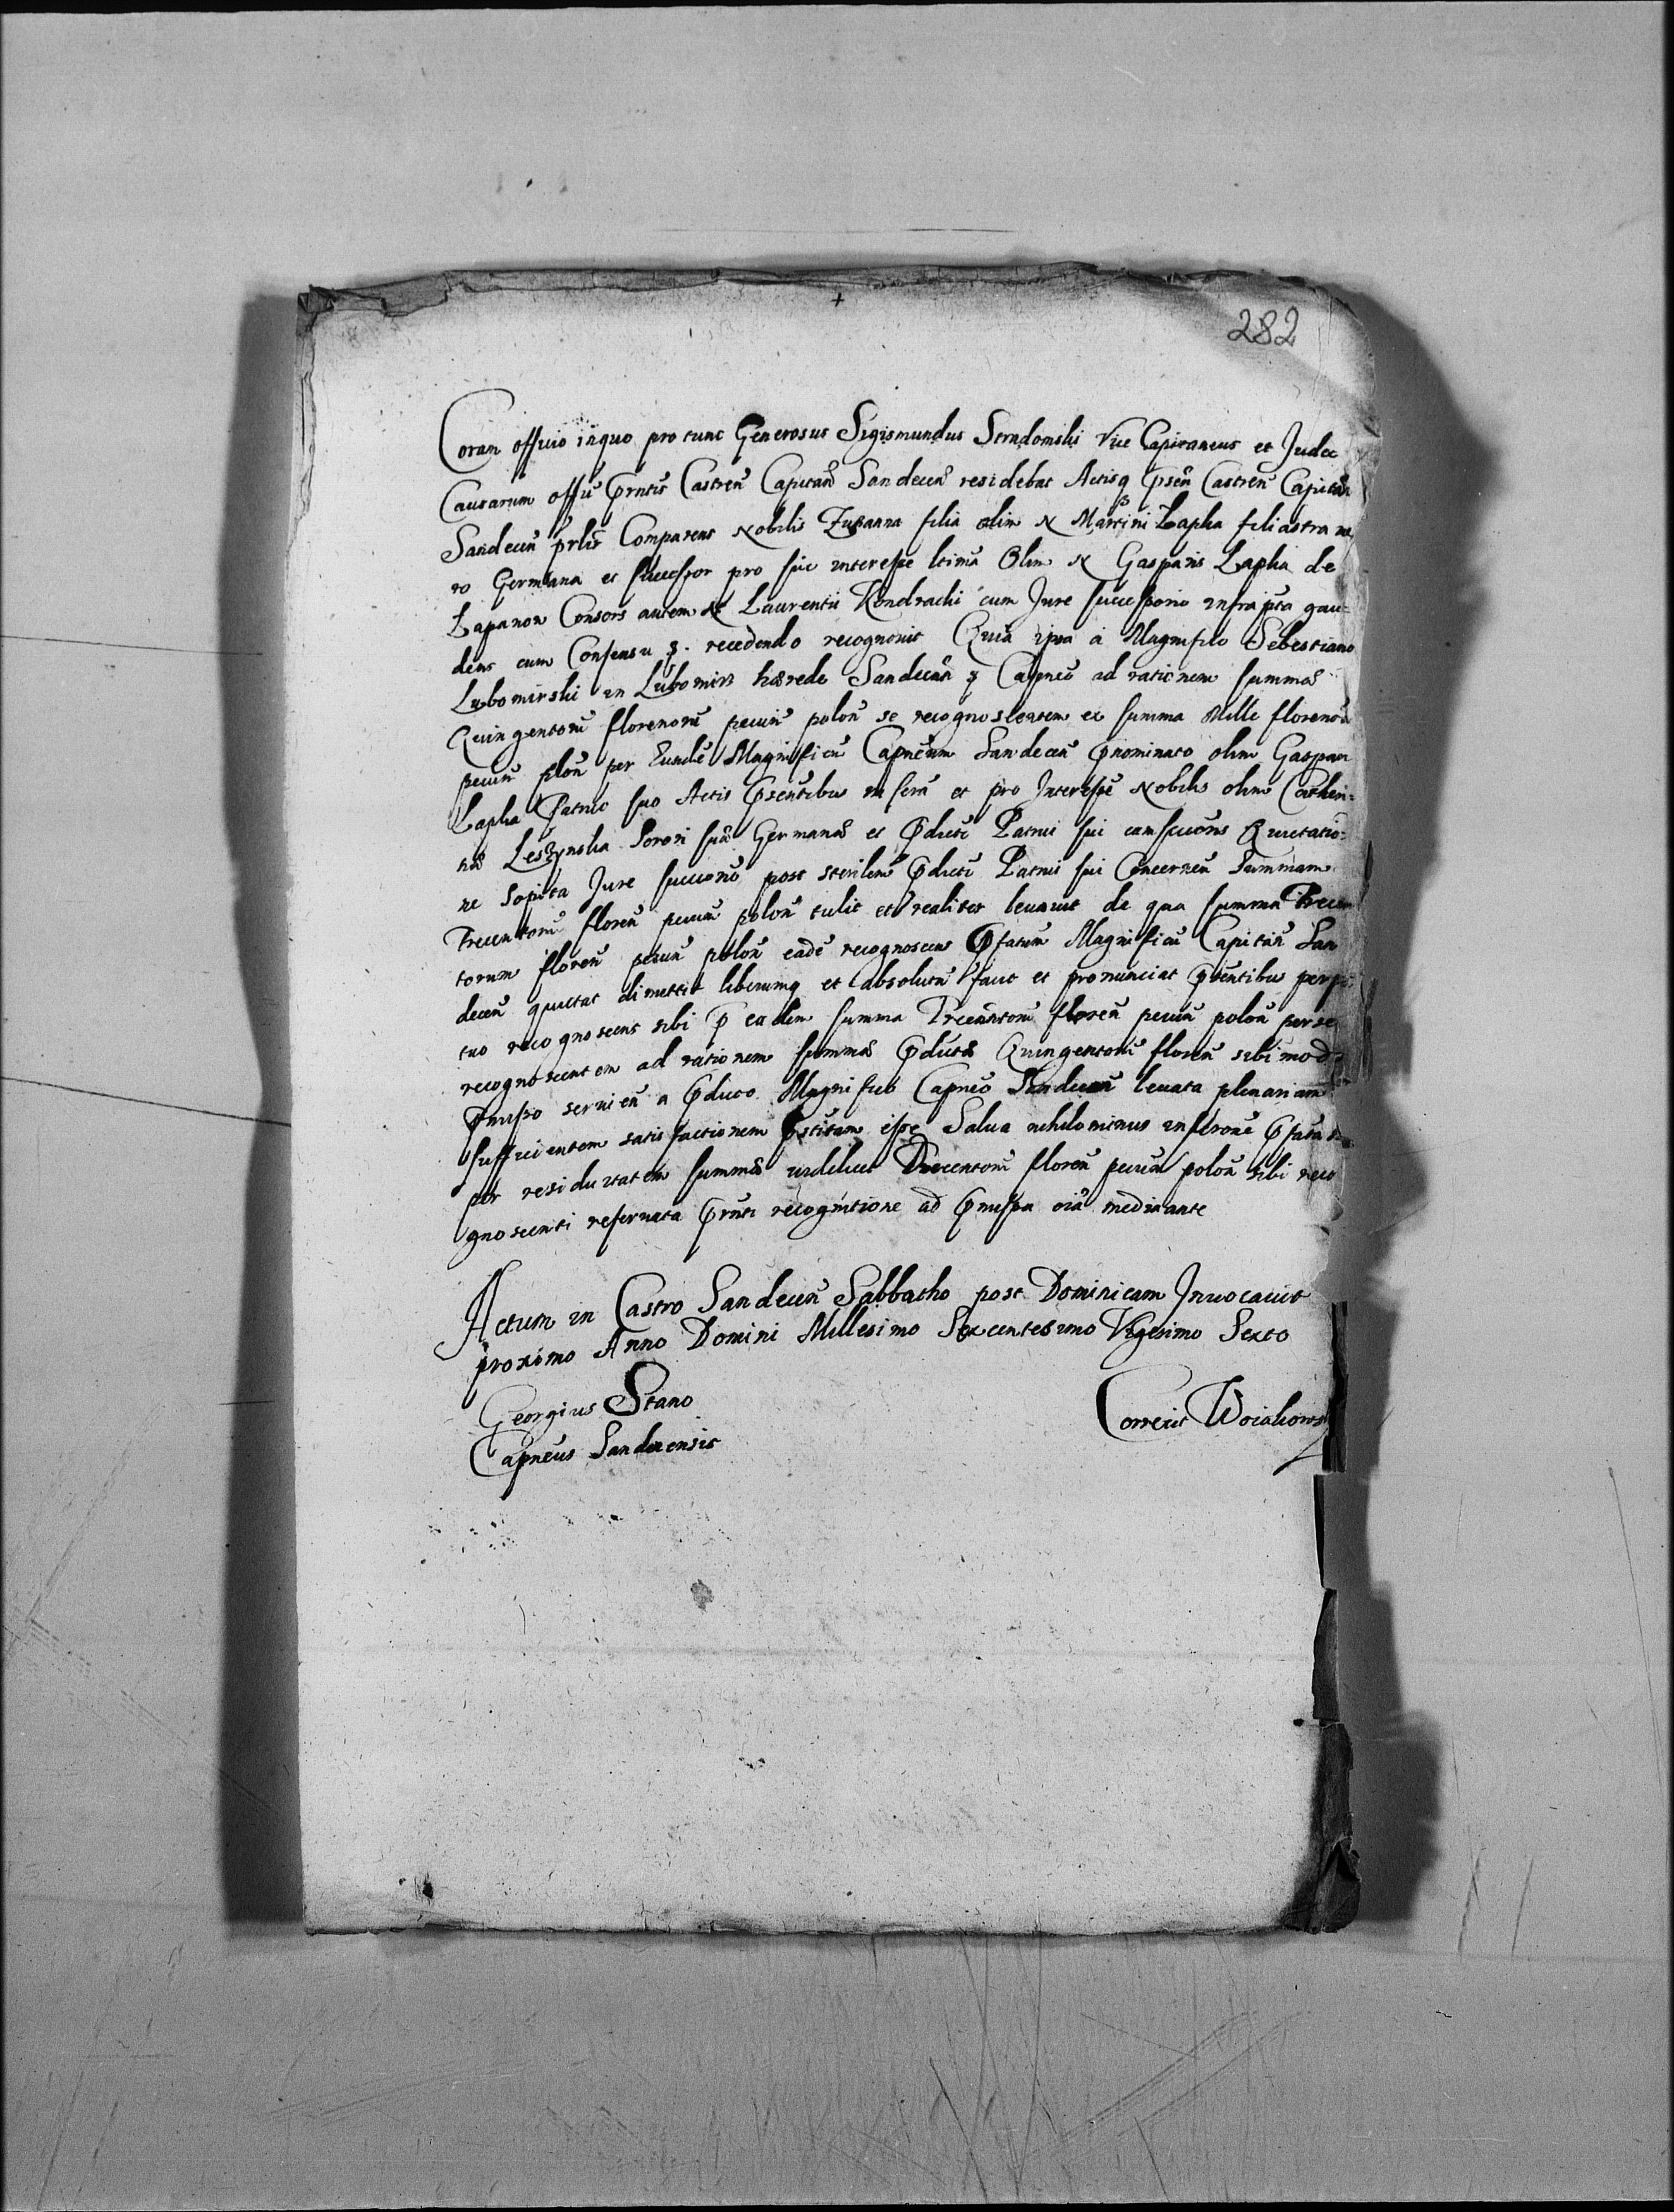 282
Coram officio inquo pro tunc Generosus Sigismundus Stradomski Vice Capitaneus et Judex
Causarum offii prntis Castren Capitan Sandecen residebat Actisq psen Castren Capitan
Sandecen prlr Comparens Nobilis Zuzanna filia olim N Martini Lapka filiastra ve
ro Germana et successor pro sui interesse ltima Olim N Gasparis Lapka de
Lapanow Consors autem N Laurentii Kondracki cum Jure successorio infrascripta gau-
dens cum Consensu recedendo recognovit Quia ipsa a Magnifico Sebestiano
Lubomirski in Lubomirz hærede Sandecen Capneo ad rationem summæ
Quingentoru florenoru pecun polon se recognoscentem ex summa Mille florenoru
pecun polon per Eunde Magnificu Capneum Sandecen pnominato olim Gaspari
Lapka Patruo suo Actis psentibus inscra et pro Interesse Nobilis olim Catheri-
næ Leszynska Sorori suæ Germanæ et pducti Patrui sui Quietatio-
ne sopita Jure succionis post sterilem pducti Patrui sui Concernen Summam
Trecentoru floren pecun polon tulit et realiter levavit de qua summa Trecen
torum floren pecun polon eade recognoscens pfatum Magnificu Capitan San
decen quietat dimittit liberumq et absolutu facit et pronunciat psentibus perpe
tuo recognoscens sibi p eadem summa Trecentoru floren pecun polon per se
recognoscentem ad rationem summæ pductæ Quingentoru floren sibi modo
pmisso servien a pducto Magnifico Capneo Sandecen levata plenariam
sufficientem satisfactionem pstitam esse Salva nihilominus inscrone pfata
per residuitatem summæ videlicet Ducentoru floren pecun polon sibi reco
gnoscenti reservata prnti recognitione ad pmissa oia mediante
Actum in Castro Sandecen Sabbatho post Dominicam Invocavit
proximo Anno Domini Millesimo Sexcentesimo Vigesimo Sexto
Georgius Stano
Capneus Sandecensis
Correxit Woiakows